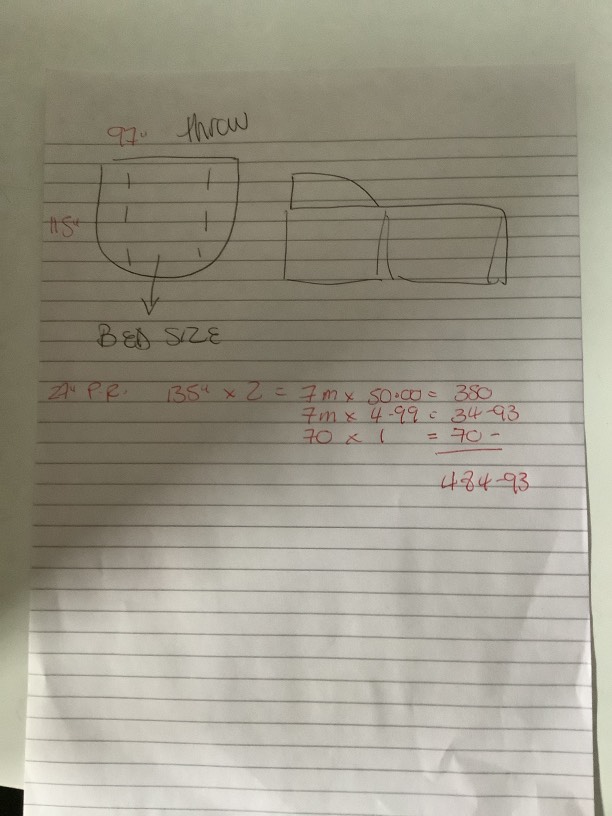 97" throw
115"
BED SIZE
27" P.R. 135" x 2 = 7m x 50.00 = 350
7m x 4-99 = 34-93
70 x 1 = 70 -
484-93